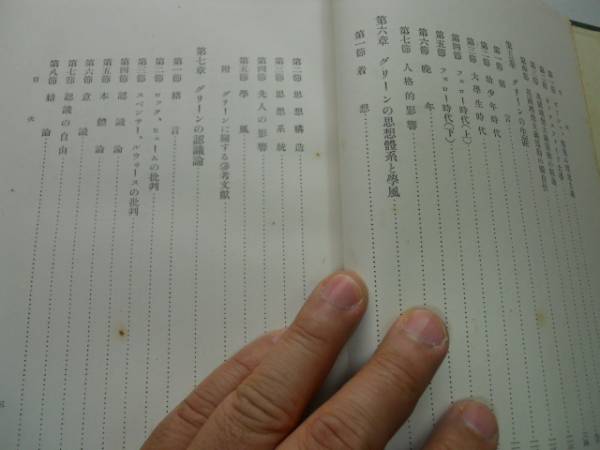 グリーンの生涯
第一節 緒言
第二節 幼少年時代
第三節 大學生時代
第四節 フェロー時代(上)
第五節 フェロー時代(下)
第六節 晩年
第七節 人格的影響
第六章 グリーンの思想體系と學風
第一節 着想
第二節 思想構造
第三節 思想系統
第四節 先人の影響
第五節 學風
附 グリーンに關する參考文獻
第七章 グリーンの認識論
第一節 緒言
第二節 ロック、ヒュームの批判
第三節 スペンサー、ルウィースの批判
第四節 認識論
第五節 本體論
第六節 意識
第七節 認識の自由
第八節 結論
目次